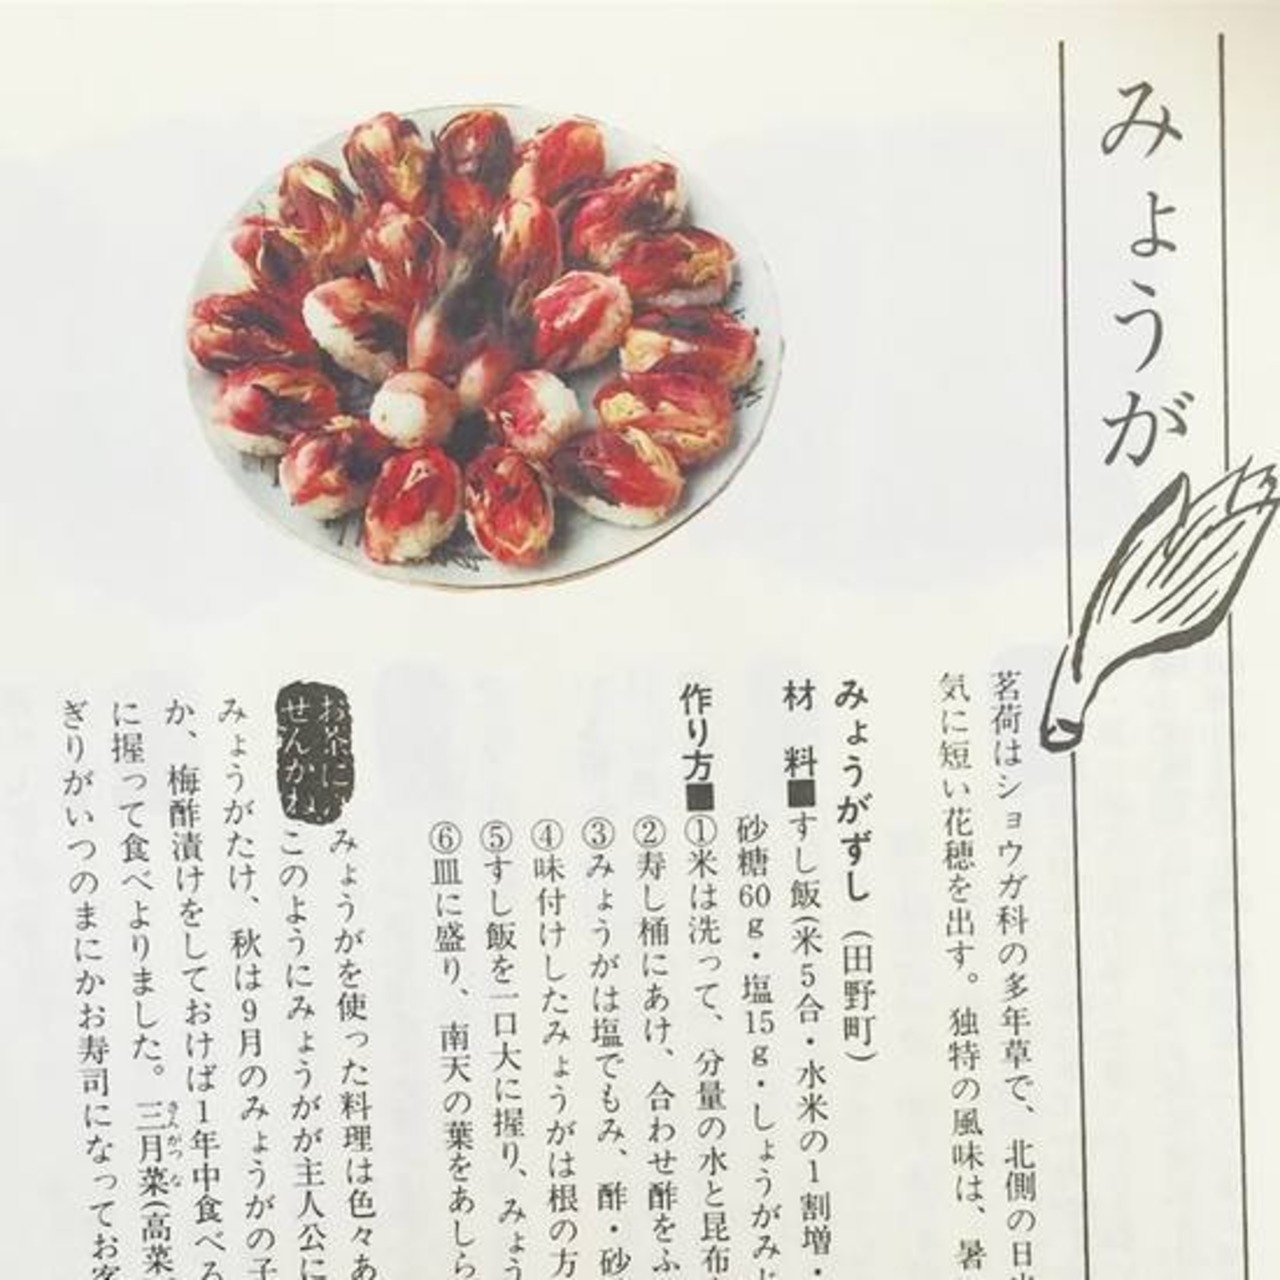 みょうが
茗荷はショウガ科の多年草で、北側の日
気に短い花穂を出す。独特の風味は、暑
みょうがずし(田野町)
材 料■すし飯(米5合・水米の1割増・
砂糖60g・塩15g・しょうがみじ
作り方■①米は洗って、分量の水と昆布
②寿し桶にあけ、合わせ酢をふ
③みょうがは塩でもみ、酢・砂
④味付けしたみょうがは根の方
⑤すし飯を一口大に握り、みょう
⑥皿に盛り、南天の葉をあしら
お茶に
せんかね
みょうがを使った料理は色々あ
このようにみょうがが主人公に
みょうがたけ、秋は9月のみょうがの子
か、梅酢漬けをしておけば1年中食べる
に握って食べよりました。三月菜(高菜
さんがつな
ぎりがいつのまにかお寿司になってお客